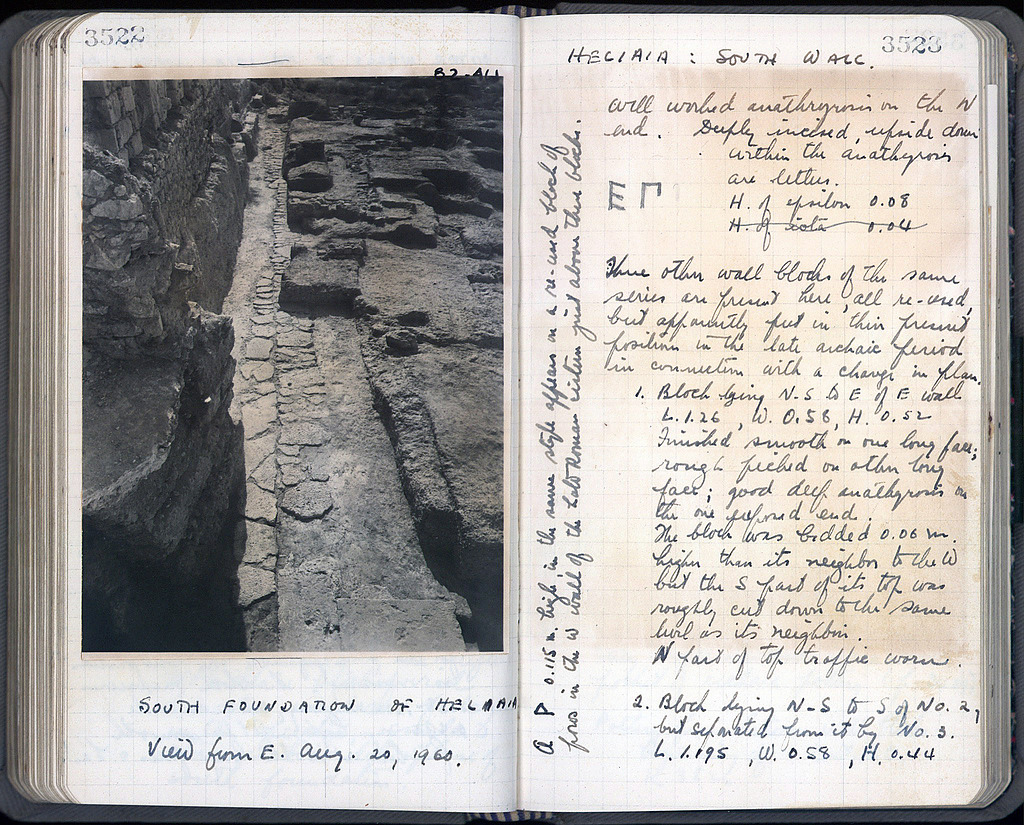 3522
B2-A11
SOUTH FOUNDATION OF HELIAIA
View from E. Aug. 20, 1960.
3523
HELIAIA : SOUTH WALL.
well worked anathyrosis on the N
end. Deeply incised, upside down
within the anathyrosis
are letters.
H. of epsilon 0.08
H. of iota 0.04
Three other wall blocks of the same
series are present here, all re-used,
but apparently put in their present
position in the late archaic period
in connection with a change in plan.
1. Block lying N-S to E of E wall
L. 1.26, W. 0.58, H. 0.52
Finished smooth on one long face;
rough picked on other long
face; good deep anathyrosis on
the one exposed end.
The block was bedded 0.06 m.
higher than its neighbor to the W
but the S part of its top was
roughly cut down to the same
level as its neighbor.
N part of top traffic worn.
2. Block lying N-S to S of No. 2,
but separated from it by No. 3.
L. 1.195, W. 0.58, H. 0.44
a P 0.115 m. high, in the same style appears on a re-used block of
poros in the W wall of the Late Roman cistern just above these blocks.